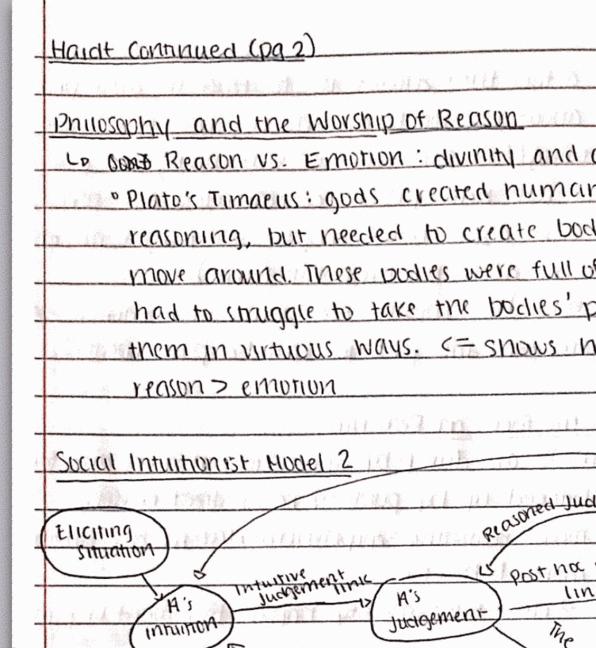 Haidt Continued (pg 2)
Philosophy and the Worship of Reason
Reason vs. Emotion : divinity and
° Plato's Timaeus : gods created human
reasoning, but needed to create bod
move around. These bodies were full of
had to struggle to take the bodies' p
them in virtuous ways. <= shows h
reason > emotion
Social Intuitionist Model 2
Eliciting
Situation
Reasoned Jud
Intuitive
Judgement link
Post hoc
lin
A's
intuition
A's
Judgement
The